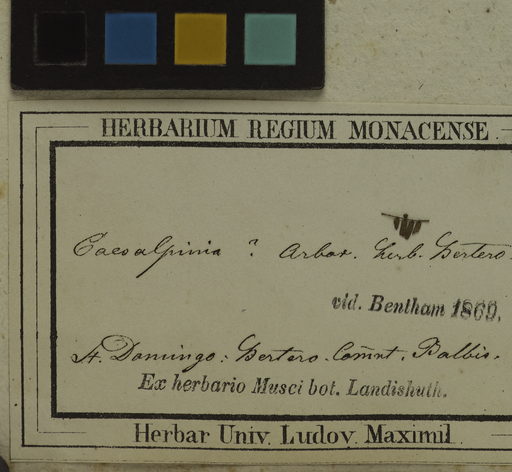 HERBARIUM REGIUM MONACENSE
Caesalpinia ? Arbor. herb. Bertero.
vid. Bentham 1860.
St. Domingo: Bertero. Comt. Balbis.
Ex herbario Musei bot. Landishuth.
Herbar Univ. Ludov. Maximil